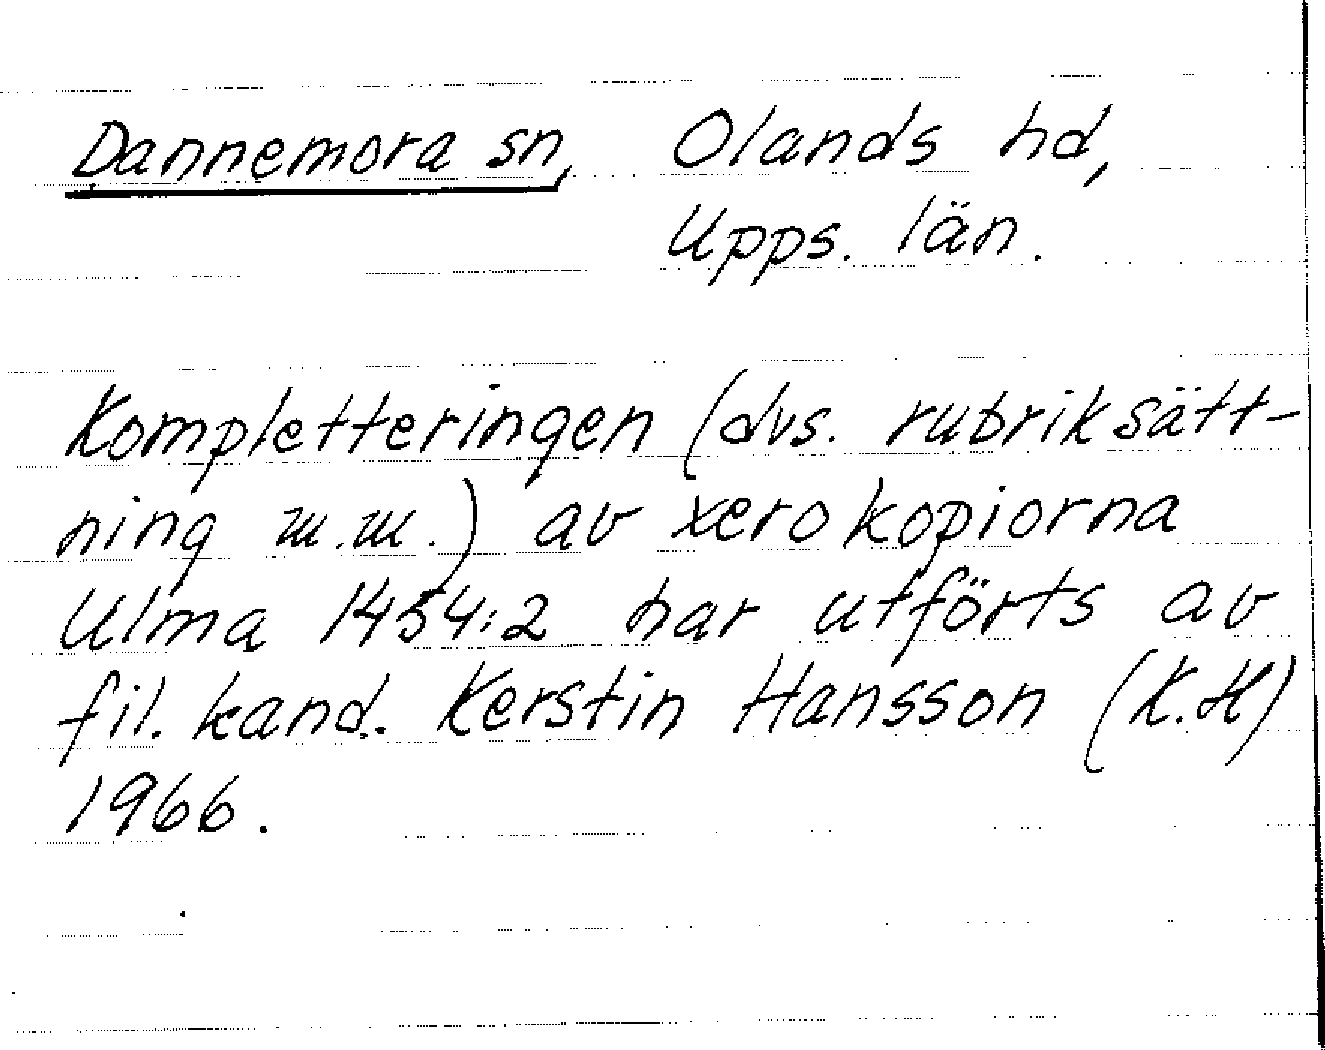 Dannemora sn, Olands hd,
Upps. län.
Kompletteringen (dvs. rubriksätt-
ning m.m.) av xerokopiorna
Ulma 1454:2 har utförts av
fil. kand. Kerstin Hansson (K.H)
1966.